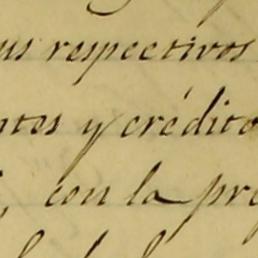 us respectivos
ntes y crédito
, con la pre